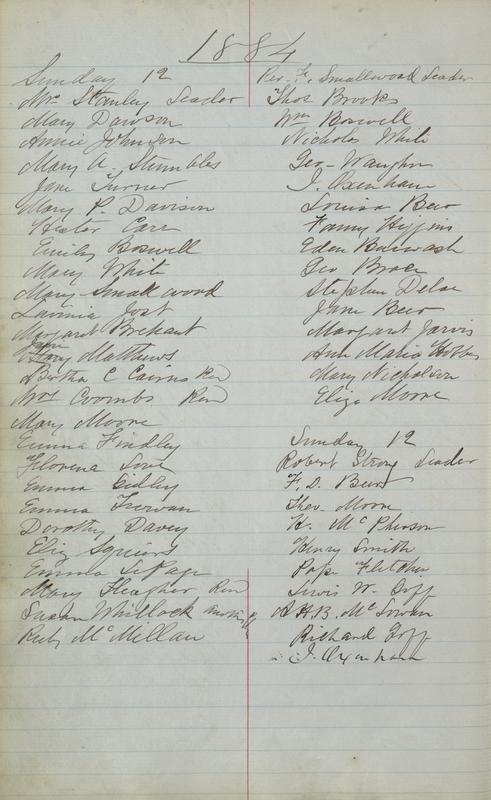 1884
Sunday 12
Mrs Stanley Leader
Mary Dawson
Annie Johnson
Mary A. Stumbles
Jane Turner
Mary P. Davison
Hester Carr
Emily Boswell
Mary White
Mary Smallwood
Lavinia Jost
Margaret
Matthews
Bertha C Cairns Rem
Mrs Coombs Rem
Mary Moore
Emma Findley
Florena Love
Emma Gidley
Emma
Dorothy Davey
Eliz Squires
Emma LePage
Mary Fleagher Rem
Susan Whitlock
Ruby McMillan
Rev. F. Smallwood Leader
Thos Brooks
Wm Boswell
Nicholas White
Geo Vaughn
J. Oxenham
Louisa Beer
Fanny Higgins
Eden
Geo Brace
Stephen
Jane Beer
Margaret Jarvis
Ann Maria Hobbs
Mary Nicholson
Eliza Moore
Sunday 12
Robert Strong Leader
F. D. Beer
Theo. Moore
H. McPherson
Henry Smith
Pope Fletcher
Lewis W. Goff
A. H. B. McGowan
Richard Goff
J. Oxenham